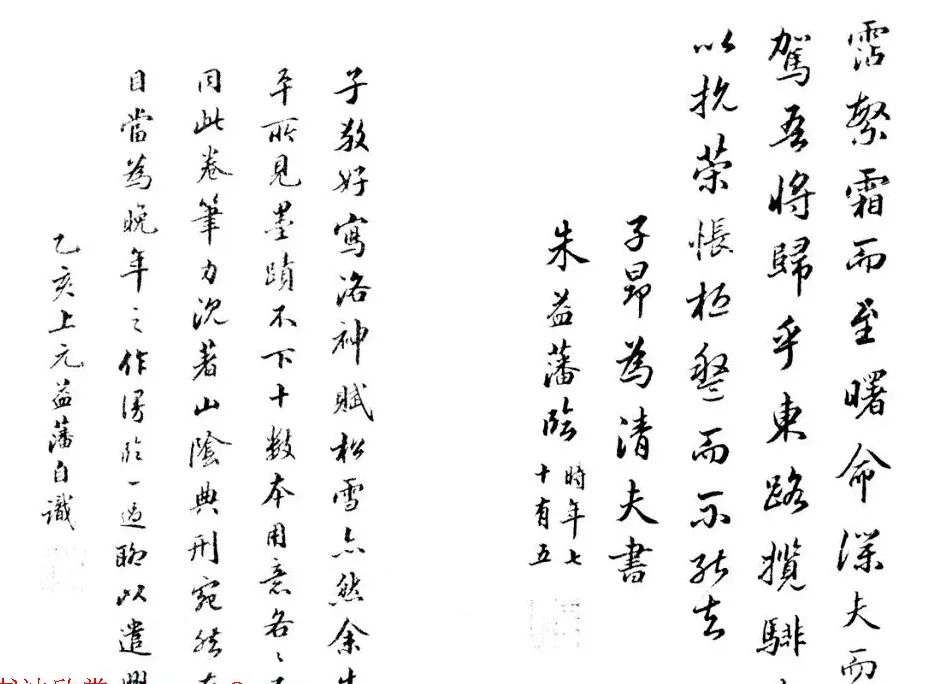 霑繁霜而至曙命僕夫而
駕吾將歸乎東路攬騑
以抗策悵桓盤而不能去
子昂為清夫書
朱益藩臨
時年七
十有五
子敬好寫洛神賦松雪亦然余生
平所見墨蹟不下十數本用意各〻不
同此卷筆力沉著山陰典刑宛然在
目當為晚年之作得臨一過聊以遣興
乙亥上元益藩自識